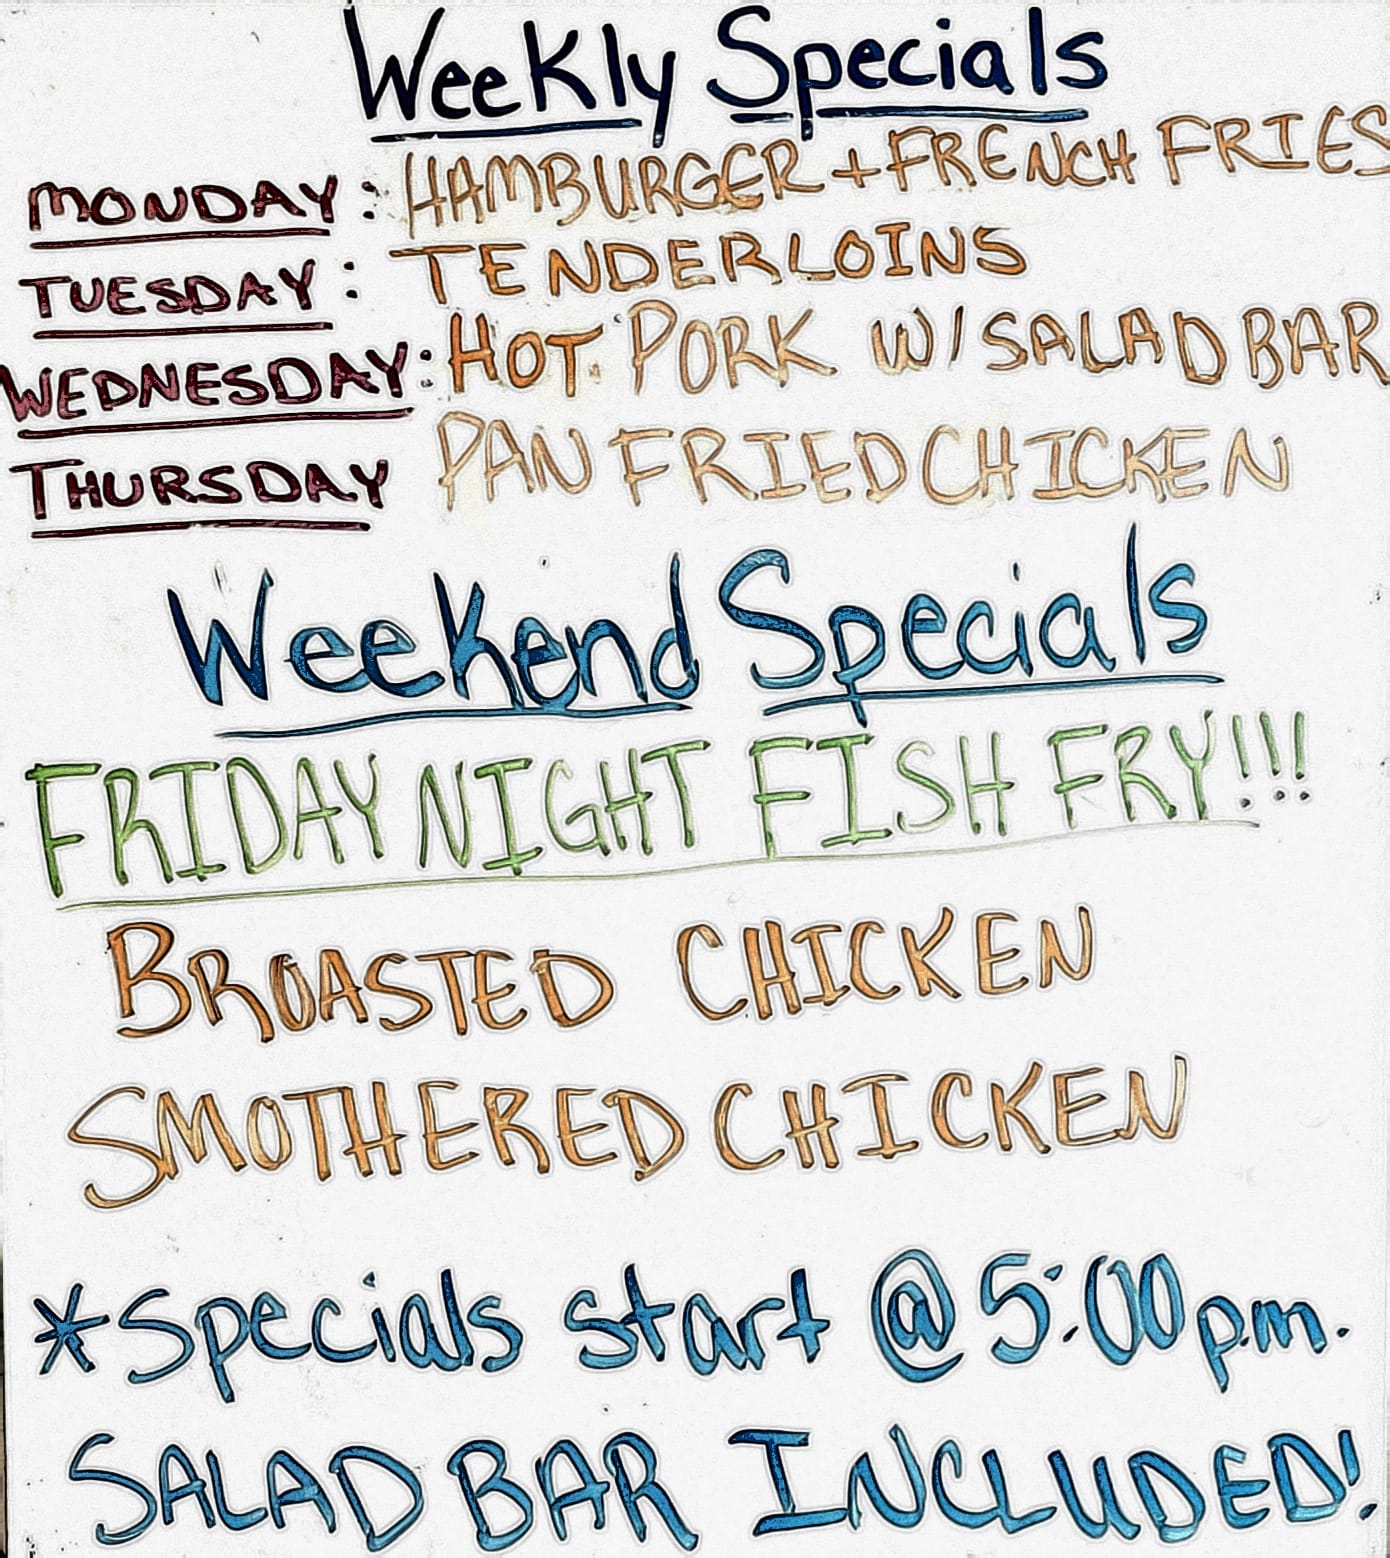 Weekly Specials
MONDAY: HAMBURGER + FRENCH FRIES
TUESDAY: TENDERLOINS
WEDNESDAY: HOT PORK W/ SALAD BAR
THURSDAY PAN FRIED CHICKEN
Weekend Specials
FRIDAY NIGHT FISH FRY!!!
BROASTED CHICKEN
SMOTHERED CHICKEN
*Specials start @ 5:00 p.m.
SALAD BAR INCLUDED!